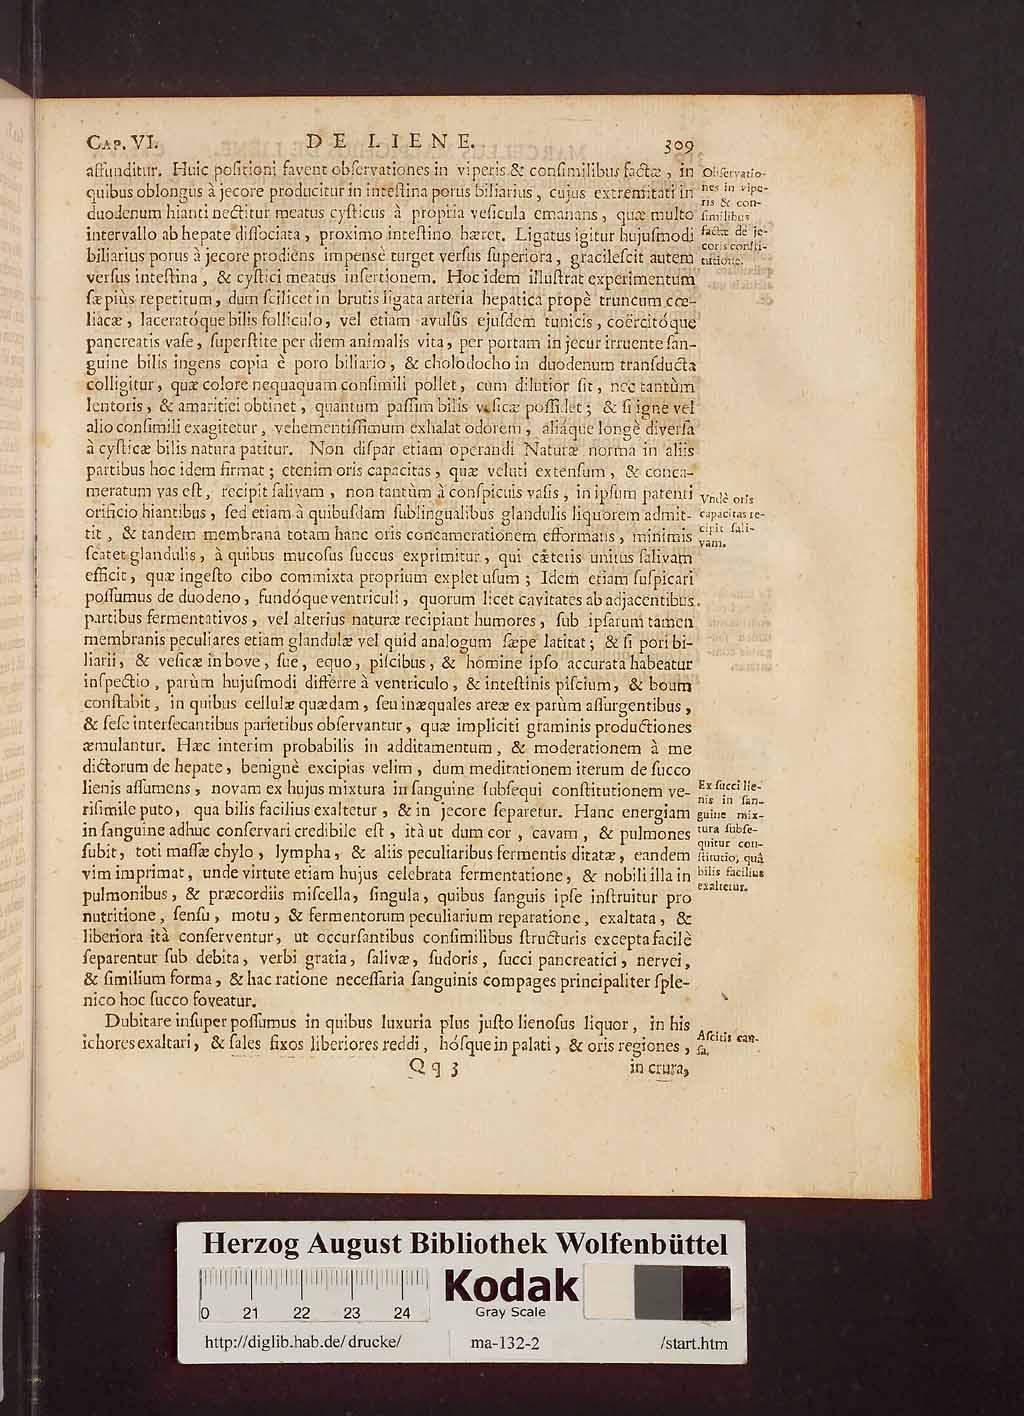 CAP. VI. DE LIENE. 309
affunditur. Huic poſitioni favent obſervationes in viperis & conſimilibus factæ, in
quibus oblongus à jecore producitur in inteſtina porus biliarius, cujus extremitati in
duodenum hianti nectitur meatus cyſticus à propria veſicula emanans, quæ multo
intervallo ab hepate diſſociata, proximo inteſtino hæret. Ligatus igitur hujuſmodi
biliarius porus à jecore prodiens impensè turget verſus ſuperiora, gracileſcit autem
verſus inteſtina, & cyſtici meatus inſertionem. Hoc idem illuſtrat experimentum
ſæpiùs repetitum, dum ſcilicet in brutis ligata arteria hepatica propè truncum cœ-
liacæ, laceratóque bilis folliculo, vel etiam avulſis ejuſdem tunicis, coërcitóque
pancreatis vaſe, ſuperſtite per diem animalis vita, per portam in jecur irruente ſan-
guine bilis ingens copia è poro biliario, & cholodocho in duodenum transducta
colligitur, quæ colore nequaquam conſimili pollet, cum dilutior ſit, nec tantùm
lentoris, & amaritiei obtinet, quantum paſſim bilis veſicæ poſſidet; & ſi igne vel
alio conſimili exagitetur, vehementiſſimum exhalat odorem, aliáque longè diverſa
à cyſticæ bilis natura patitur. Non diſpar etiam operandi Naturæ norma in aliis
partibus hoc idem firmat; etenim oris capacitas, quæ veluti extenſum, & conca-
meratum vas eſt, recipit ſalivam, non tantùm à conſpicuis vaſis, in ipſum patenti
orificio hiantibus, ſed etiam à quibuſdam ſublingualibus glandulis liquorem admit-
tit, & tandem membrana totam hanc oris concamerationem efformans, minimis
ſcatet glandulis, à quibus mucoſus ſuccus exprimitur, qui cæteris unitus ſalivam
efficit, quæ ingeſto cibo commixta proprium explet uſum; Idem etiam ſuſpicari
poſſumus de duodeno, fundóque ventriculi, quorum licet cavitates ab adjacentibus
partibus fermentativos, vel alterius naturæ recipiant humores, ſub ipſarum tamen
membranis peculiares etiam glandulæ vel quid analogum ſæpe latitat; & ſi pori bi-
liarii, & veſicæ in bove, ſue, equo, piſcibus, & homine ipſo accurata habeatur
inſpectio, parùm hujuſmodi differre à ventriculo, & inteſtinis piſcium, & boum
conſtabit, in quibus cellulæ quædam, ſeu inæquales areæ ex parùm aſſurgentibus,
& ſeſe interſecantibus parietibus obſervantur, quæ impliciti graminis productiones
æmulantur. Hæc interim probabilis in additamentum, & moderationem à me
dictorum de hepate, benignè excipias velim, dum meditationem iterum de ſucco
lienis aſſumens, novam ex hujus mixtura in ſanguine ſubſequi conſtitutionem ve-
riſimile puto, qua bilis facilius exaltetur, & in jecore ſeparetur. Hanc energiam
in ſanguine adhuc conſervari credibile eſt, ità ut dum cor, cavam, & pulmones
ſubit, toti maſſæ chylo, lympha, & aliis peculiaribus fermentis ditatæ, eandem
vim imprimat, unde virtute etiam hujus celebrata fermentatione, & nobili illa in
pulmonibus, & præcordiis miſcella, ſingula, quibus ſanguis ipſe inſtruitur pro
nutritione, ſenſu, motu, & fermentorum peculiarium reparatione, exaltata, &
liberiora ità conſerventur, ut occurſantibus conſimilibus ſtructuris excepta facilè
ſeparentur ſub debita, verbi gratia, ſalivæ, ſudoris, ſucci pancreatici, nervei,
& ſimilium forma, & hac ratione neceſſaria ſanguinis compages principaliter ſple-
nico hoc ſucco foveatur.
Dubitare inſuper poſſumus in quibus luxuria plus juſto lienoſus liquor, in his
ichores exaltari, & ſales fixos liberiores reddi, hóſque in palati, & oris regiones,
Qq 3 in crura,
Obſervatio-
nes in vipe-
ris & con-
ſimilibus
factæ de je-
coris conſti-
tutione.
Vndè oris
capacitas re-
cipit ſali-
vam.
Ex ſucci lie-
nis in ſan-
guine mix-
tura ſubſe-
quitur con-
ſtitutio, quâ
bilis facilius
exaltetur.
Aſcitis cau-
ſa.
Herzog August Bibliothek Wolfenbüttel
Kodak
Gray Scale
0 21 22 23 24
http://diglib.hab.de/drucke/ ma-132-2 /start.htm